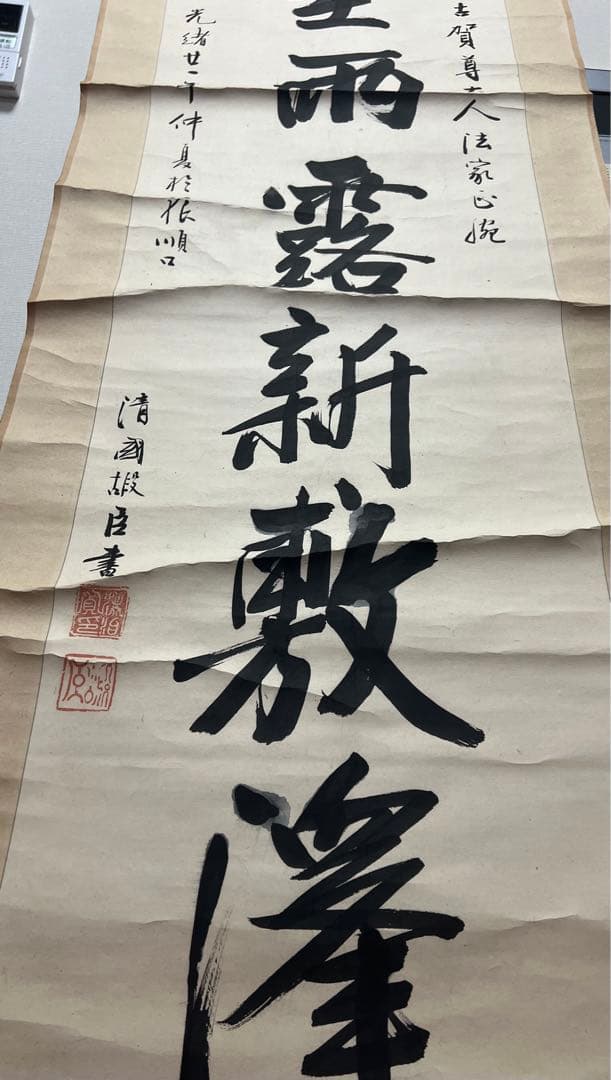 古賀尊大人法家正腕
雨露新敷澤
光緒廿一年仲夏於旅順口
清國嘏臣書